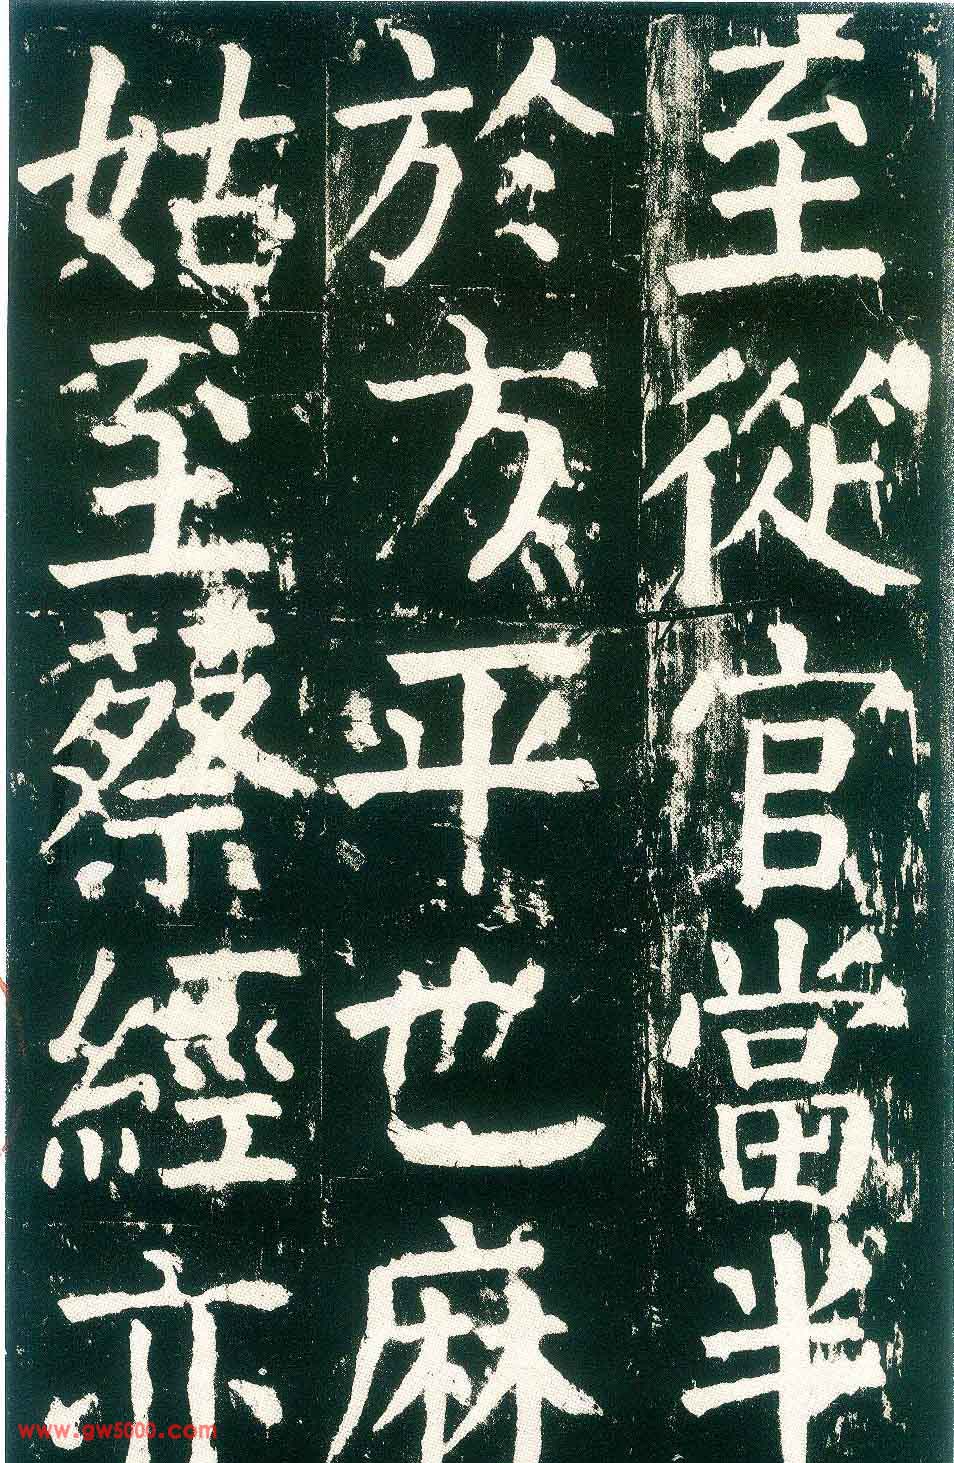 至從官當半
於方平也麻
姑至蔡經亦
www.gw5000.com